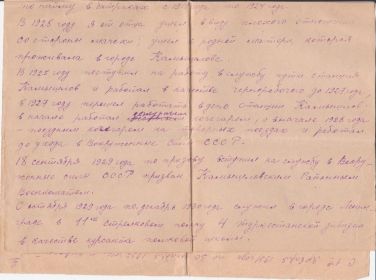 по найму в батраках с 19 года по 1924 год.
В 1925 году я от отца ушел в виду плохого отношения
со стороны мачехи; ушел к родной матери которая
проживала в городе Камышлове.
В 1925 году поступил на работу в службу пути станция
Камышлов и работал в качестве чернорабочего до 1929 года
в 1929 году перешел работать в депо станции Камышлов,
в начале работал кочегаром, а в начале 1928 года
- поездным кочегаром на паровозах и работал
до ухода в Вооруженные Силы СССР.
18 сентября 1929 года по призыву вступил на службу в Воору-
женные силы СССР призван Камышловским Районным
Военкоматом.
С октября 1929 года по декабрь 1930 года служил в городе Ленин-
граде в 11ом Стрелковом полку 4 Туркестанской дивизии
в качестве курсанта полковой школы.